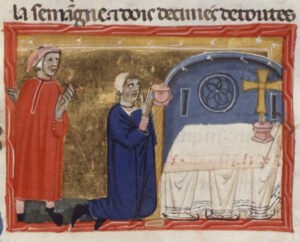 la semaigne ⁊ dois deciner de toutes